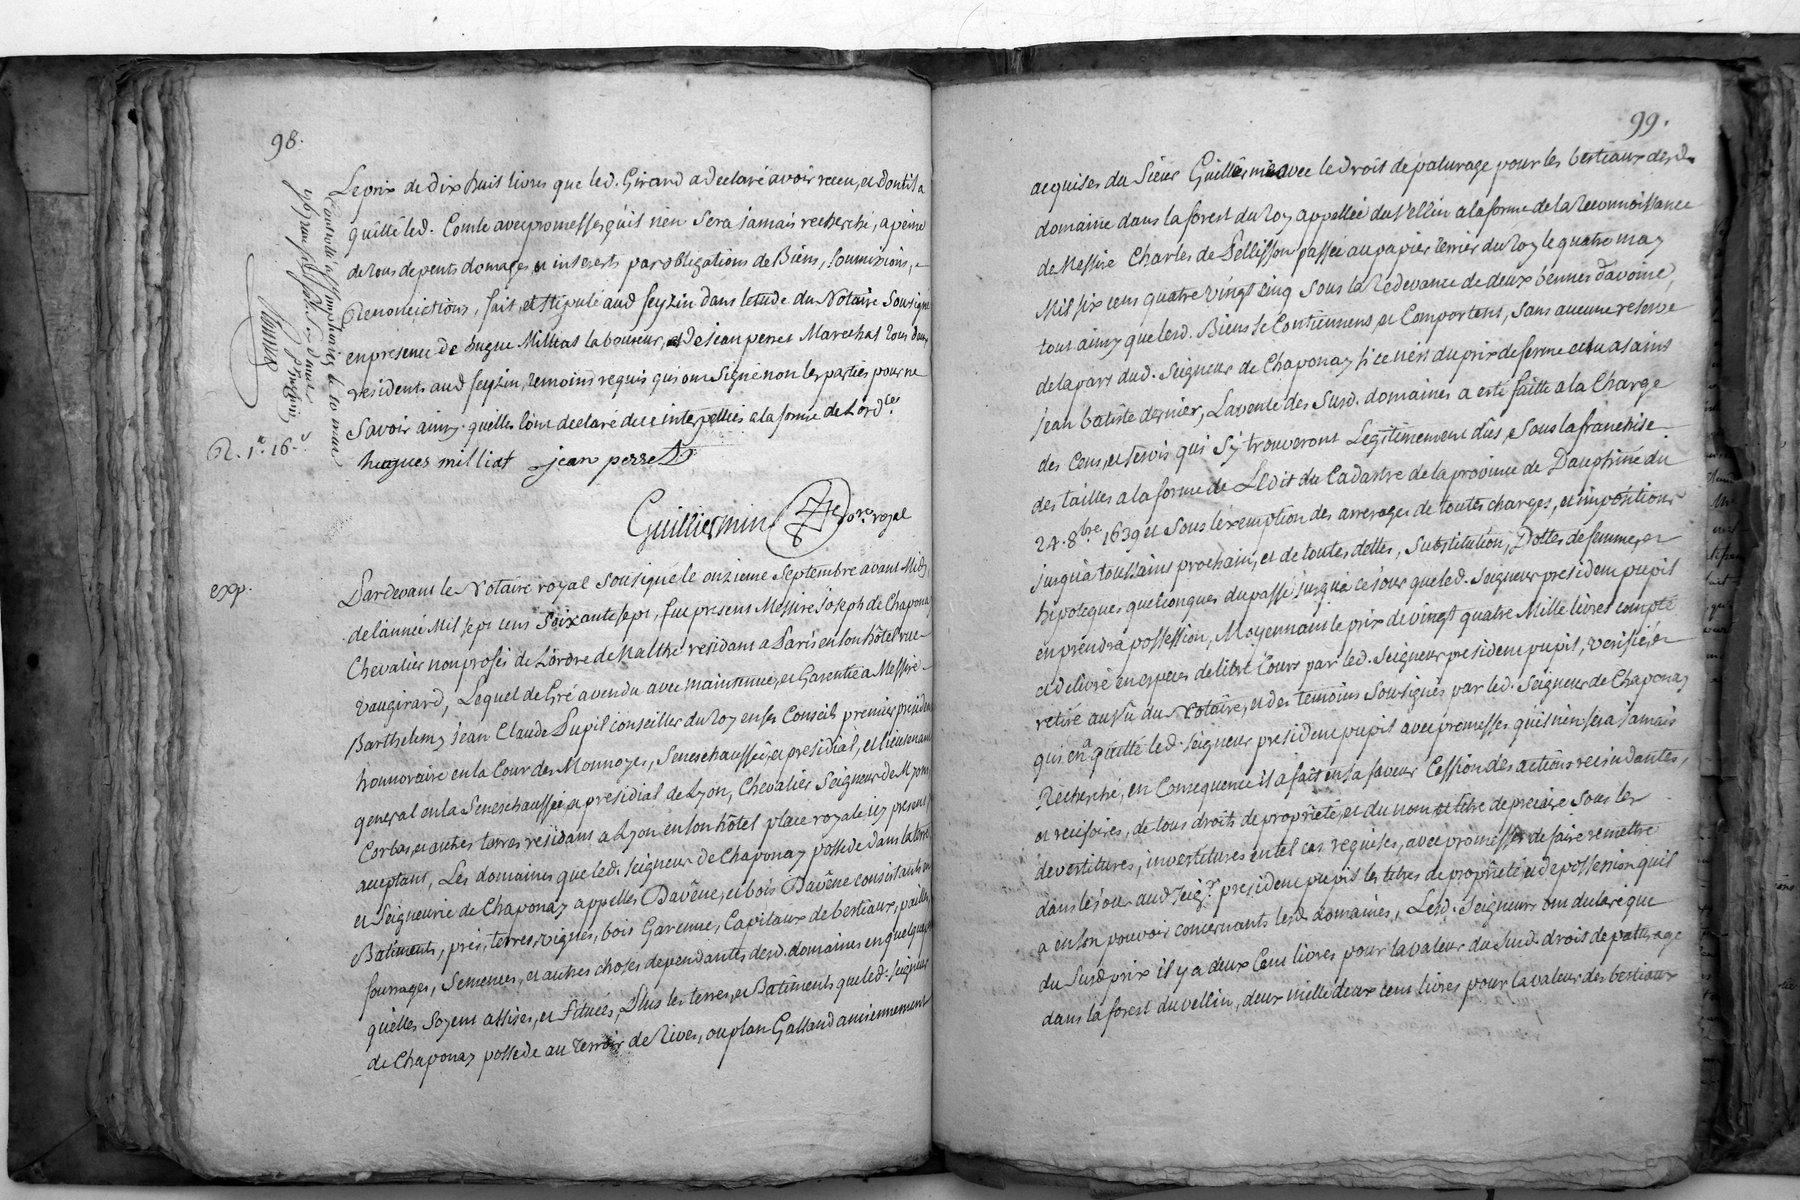 98.
Le prix de dix huit livres que led. Girard a declaré avoir receu, et dont il a
quitté led. Comte avec promesses qu'il n'en sera jamais recherché, a peine
de tous depents domages et interests par obligations de Biens, soumissions,
Renonciations, fait et stipulé aud feyzin dans letude du Notaire Sousigné
en presence de hugue Milliat laboureur, et de jean perret Marechal tous deux
residents aud feyzin, temoins requis qui ont signé non les parties pour ne
savoir ainsy quelles l'ont declaré de ce interpellés a la forme de l'ord.ce
hugues milliat jean perret
R. 1# 16s
Guilliermin No.re royal
exp.
Pardevant le Notaire royal sousigné le onzieme Septembre avant Midy
de lannée Mil sept cens Soixante sept, fut present Messire joseph de Chapona
Chevalier non profés de L'ordre de Malthe residant a Paris en son hôtel rue
vaugirard, Lequel de gré a vendu avec maintenue, et Garentie a Messire
Barthelemy jean Claude Pupil conseiller du roy en ses Conseils premier president
honnoraire en la Cour des Monnoyes, Seneschaussée, et presidial, et lieutenant
general en la Seneschaussée, et presidial de Lyon, Chevalier Seigneur de Myons,
Corbas, et autres terres residant a Lyon en son hôtel place royale icy present
aceptant, Les domaines que led. seigneur de Chaponay possede dans la terre
et Seigneurie de Chaponay appellés Davêne, et bois Davêne consistants en
Batiments, prés, terres, vignes, bois Garenne, Capitaux de bestiaux, pailles,
fourrages, Semences, et autres choses dependantes desd. domaines en quelques
qu'elles soyent assises, et situées, Plus les terres, et Batiments que led. seigneur
de Chaponay possede au terroir de Rives, ou plan Galland anciennement
99.
acquises du Sieur Guilliermin avec le droit de paturage pour les bestiaux desd.
domaine dans la forest du roy appellée du Vellin a la forme de la reconnoissance
de Messire Charles de Pellisson passée au papier terrier du roy le quatre may
Mil six cens quatre vingt cinq sous la redevance de deux bennes d'avoine,
tout ainsy que lesd. Biens se Contiennent et Comportent, sans aucune reserve
de la part dud. Seigneur de Chaponay si ce n'est du prix de ferme echu a saint
jean batiste dernier, La vente des susd. domaines a esté faitte a la Charge
des cens, et servis qui s'y trouveront Legitimement dûs, et sous la franchise
des tailles a la forme de L'Edit du Cadastre de la province de Dauphiné du
24. 8bre 1639 et sous l'exemption des arrerages de toutes charges, et impositions
jusqu'a toussaint prochain, et de toutes dettes, substitution, Dottes de femme, et
hipoteques quelconques du passé jusqu'a ce jour que led. Seigneur president pupil
en prendra possession, Moyennant le prix de vingt quatre Mille livres compté
et delivré en especes de libre Cours par led. seigneur president pupil, verifié, et
retiré au sû du Notaire, et des temoins sousignés par led. Seigneur de Chaponay
qui en a quitté led. seigneur president pupil avec promesses quil n'en sera jamais
Recherché, en Consequence il a fait en sa faveur Cession des actions rescindantes,
et rescisoires, de tous droits de proprieté, et du nom et titre de precaire sous les
devestitures, investitures en tel cas requises, avec promesses de faire remettre
dans le jour aud seigr president pupil les titres de proprieté et de possession qu'il
a en son pouvoir concernants lesd. domaines, Lesd. Seigneurs ont declaré que
du Susd prix il y a deux Cent livres pour la valeur du susd. droit de paturage
dans la forest du vellin, deux mille deux cent livres pour la valeur des bestiaux